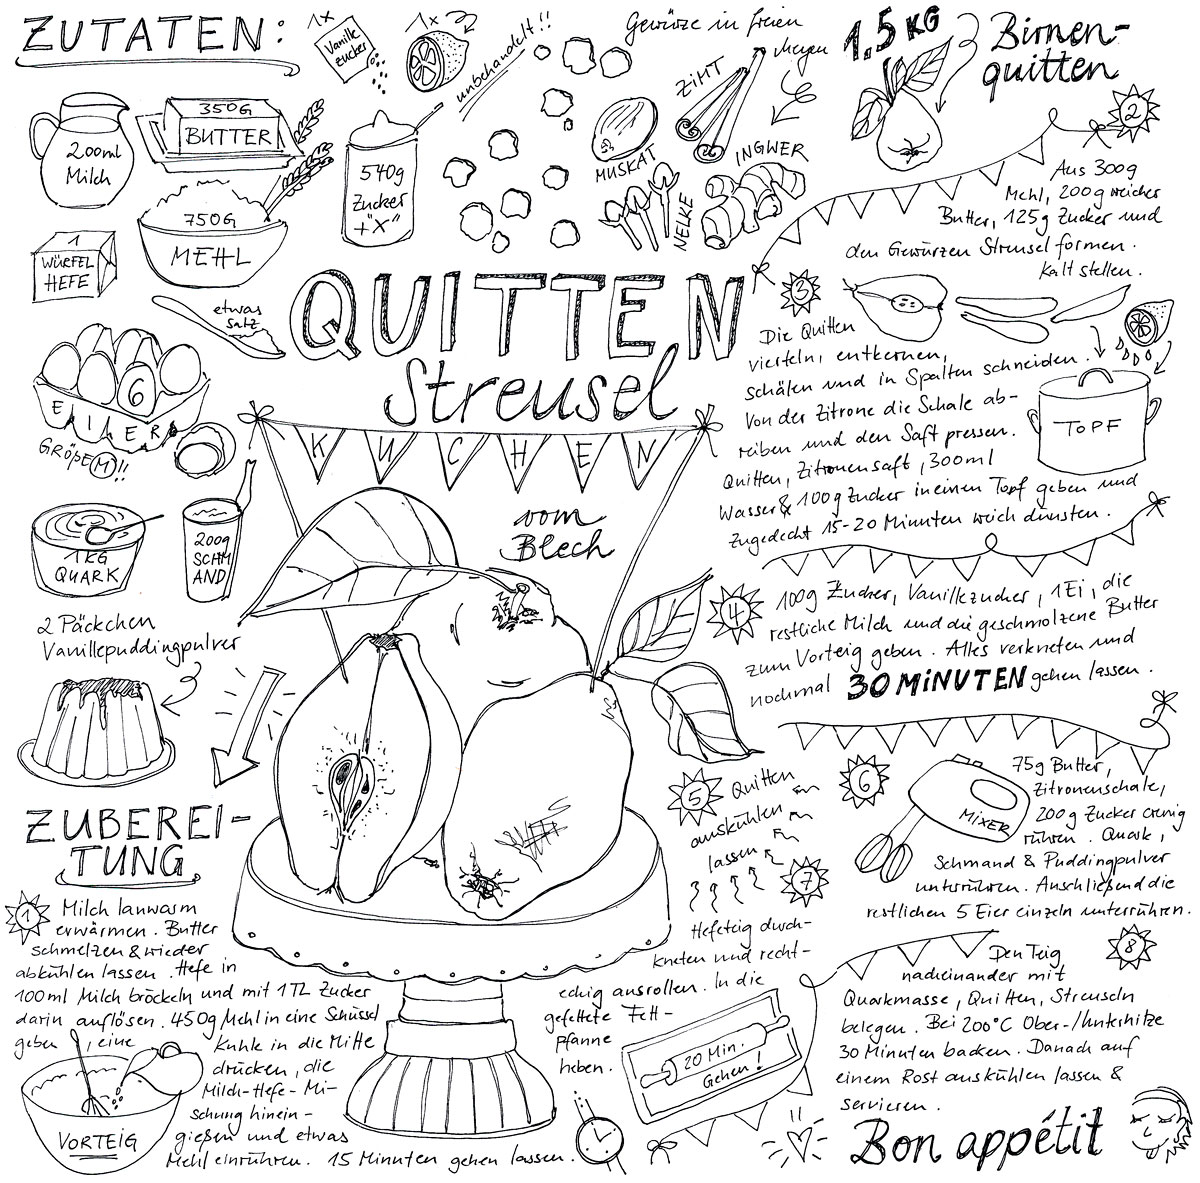 ZUTATEN:
1x
Vanille
zucker
1x
unbehandelt!!
Gewürze in freien
Mengen
ZIMT
MUSKAT
NELKE
INGWER
1,5 KG
Birnen-
quitten
200ml
Milch
350G
BUTTER
750G
MEHL
540g
Zucker
+"X"
1
WÜRFEL
HEFE
etwas
Salz
6
EIER
GRÖßE M!!
1KG
QUARK
200g
SCHM
AND
2 Päckchen
Vanillepuddingpulver
QUITTEN
Streusel
KUCHEN
vom
Blech
ZUBEREI-
TUNG
1
Milch lauwarm
erwärmen. Butter
schmelzen & wieder
abkühlen lassen. Hefe in
100ml Milch bröckeln und mit 1TL Zucker
darin auflösen. 450g Mehl in eine Schüssel
geben, eine
Kuhle in die Mitte
drücken, die
Milch-Hefe-Mi-
schung hinein-
gießen und etwas
Mehl einrühren. 15 Minuten gehen lassen.
VORTEIG
2
Aus 300g
Mehl, 200g weicher
Butter, 125g Zucker und
den Gewürzen Streusel formen.
Kalt stellen.
3
Die Quitten
vierteln, entkernen,
schälen und in Spalten schneiden.
Von der Zitrone die Schale ab-
reiben und den Saft pressen.
Quitten, Zitronensaft, 300ml
Wasser & 100g Zucker in einen Topf geben und
zugedeckt 15-20 Minuten weich dünsten.
TOPF
4
100g Zucker, Vanillezucker, 1Ei, die
restliche Milch und die geschmolzene Butter
zum Vorteig geben. Alles verkneten und
nochmal 30 MINUTEN gehen lassen.
5
Quitten
auskühlen
lassen
6
MIXER
75g Butter,
Zitronenschale,
200g Zucker cremig
rühren. Quark,
Schmand & Puddingpulver
unterrühren. Anschließend die
restlichen 5 Eier einzeln unterrühren.
7
Hefeteig durch-
kneten und recht-
eckig ausrollen. In die
gefettete Fett-
pfanne
heben.
20 Min.
Gehen!
8
Den Teig
nacheinander mit
Quarkmasse, Quitten, Streuseln
belegen. Bei 200°C Ober-/Unterhitze
30 Minuten backen. Danach auf
einem Rost auskühlen lassen &
servieren.
Bon appétit